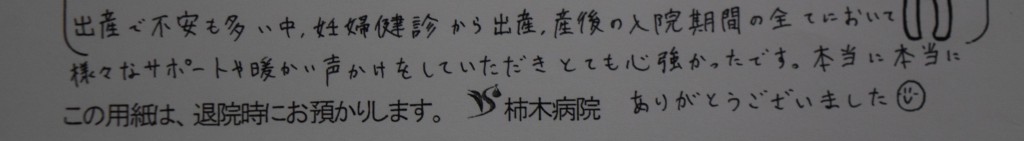 出産で不安も多い中，妊婦健診から出産，産後の入院期間の全てにおいて
様々なサポートや暖かい声かけをしていただきとても心強かったです。本当に本当に
この用紙は、退院時にお預かりします。 柿木病院 ありがとうございました